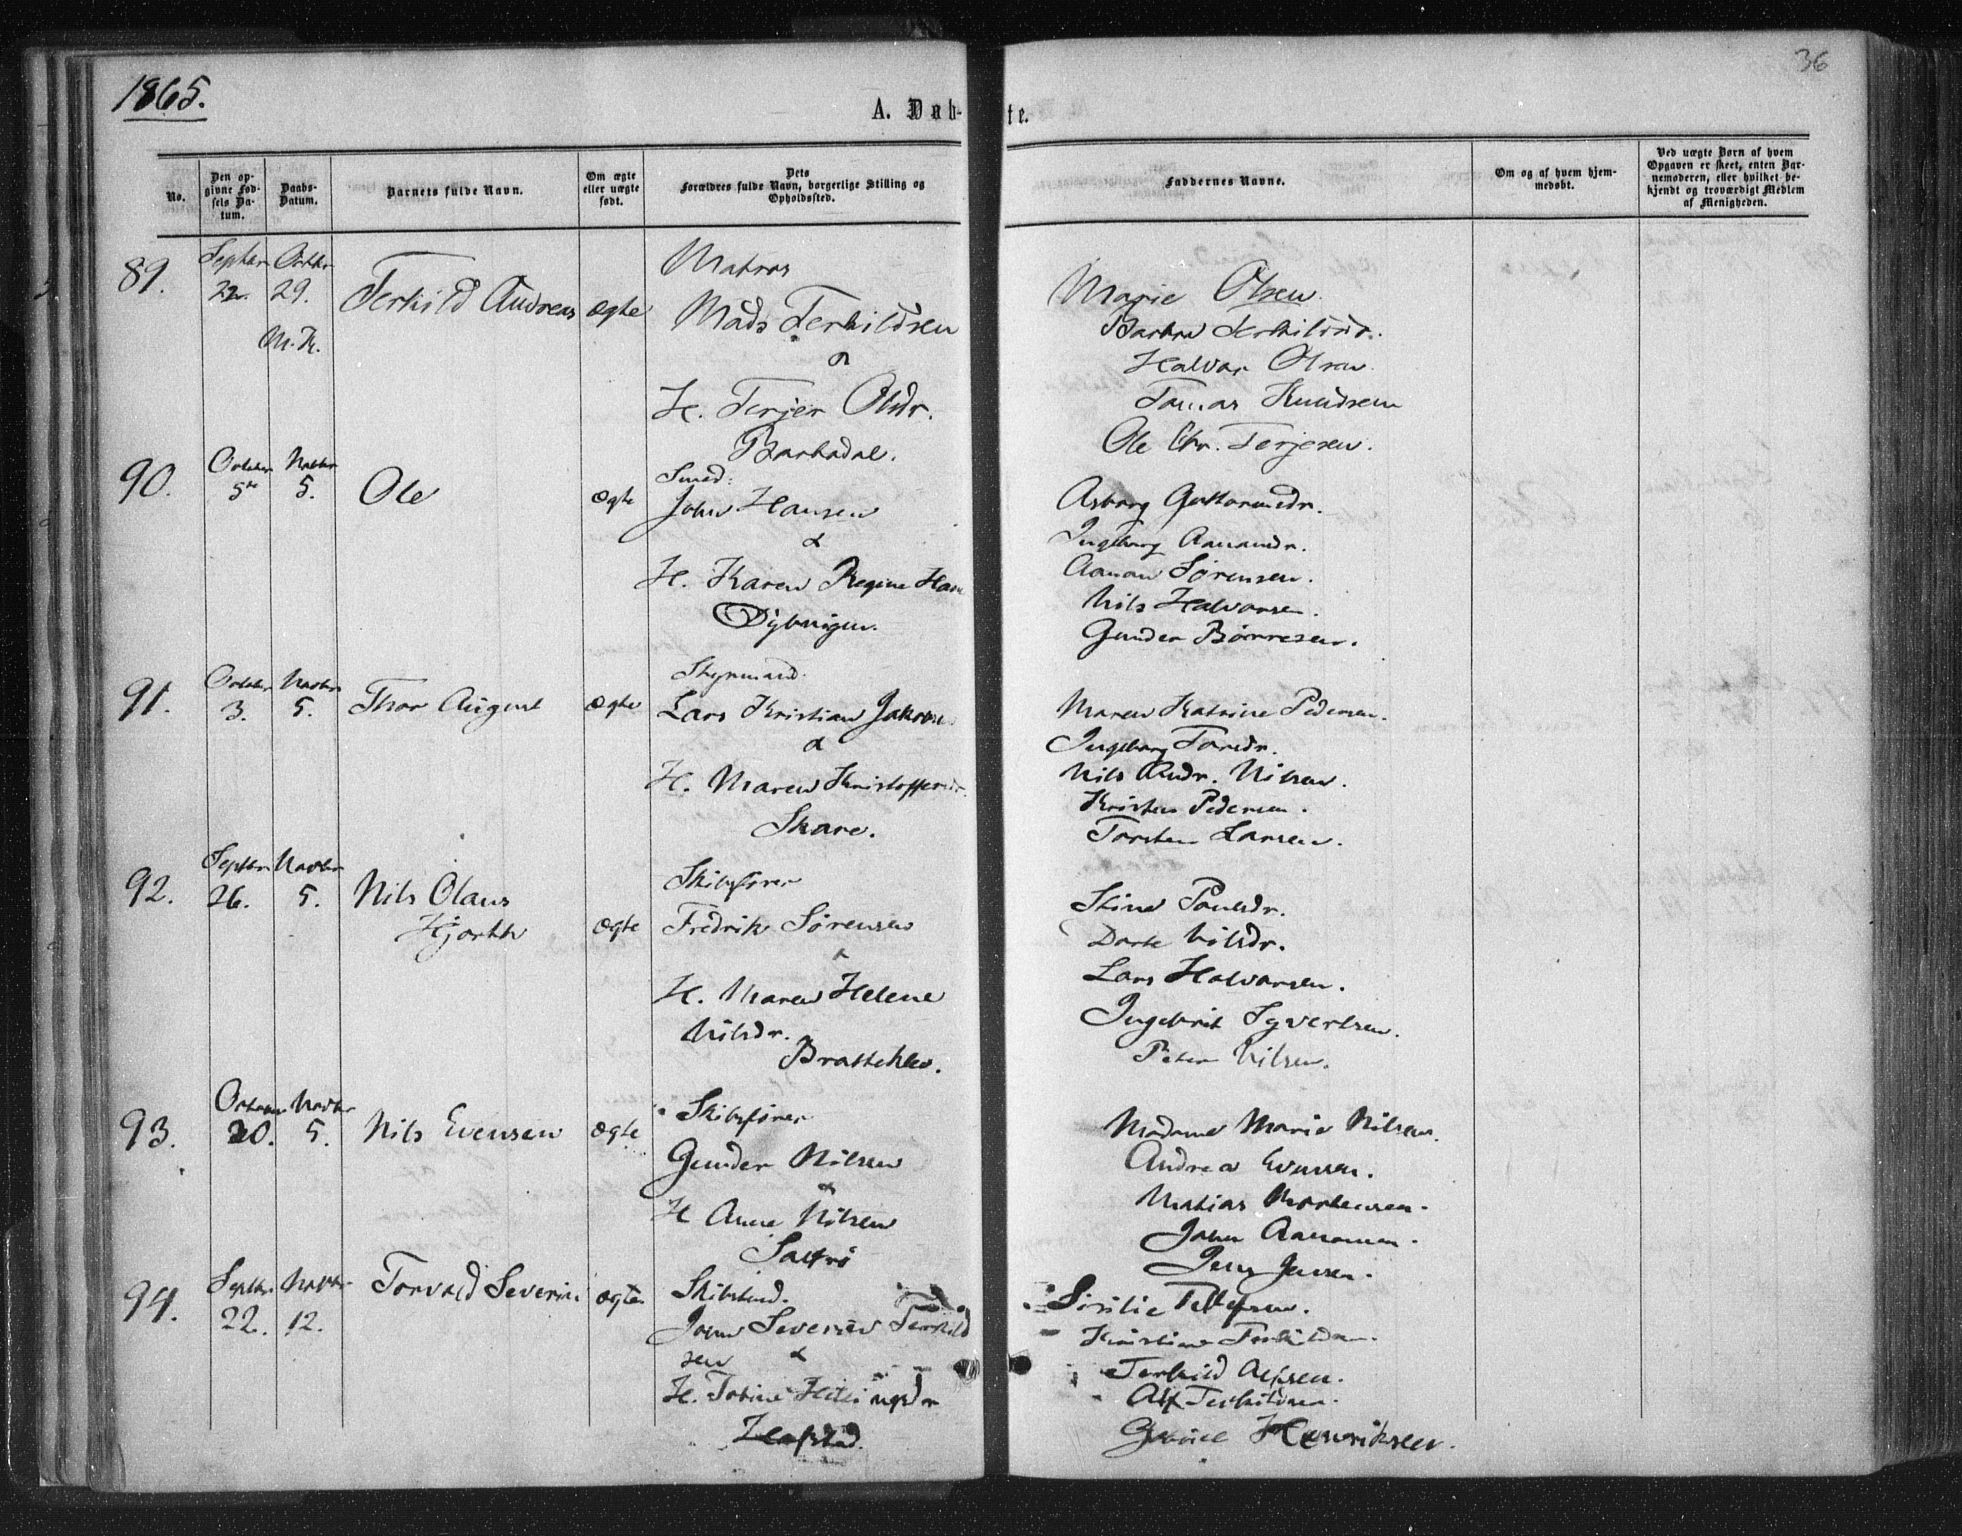 1865.
36
A. Døb-te.
No.
Den op-
givne Fød-
sels Da-
tum.
Daabs-
Datum.
Barnets fulde Navn.
Om ægte
eller uægte
født.
Dets
Forældres fulde Navn, borgerlige Stilling og
Opholdssted.
Faddernes Navne.
Om og af hvem hjem-
medøbt.
Ved uægte Børn af hvem
Opgaven er skeet, enten Bar-
nemoderen, eller hvilket be-
kjendt og troværdigt Medlem
af Menigheden.
89.
Septbr
22.
Octbr
29.
M.K.
Terkild Andreas
ægte
Matros
Mads Terkildsen
&
H. Terjer Olsdr.
Barbodal.
Marie Olsen.
Barbra Terkildsdr.
Halvor Olsen
Tomas Knudsen
Ole Chr. Terjesen.
90.
October
5te
Novbr
5.
Ole
ægte
Smed:
John Hansen
&
H. Karen Regine Han
Dybvigen.
Asborg Guttormsdr.
Ingeborg Aanonsdr.
Aanon Sørensen.
Nils Halvorsen.
Gunder Børresen.
91.
October
3.
Novbr
5.
Thor August
ægte
Styrmand.
Lars Kristian Jakobse
&
H. Maren Kristoffersdr.
Skare.
Maren Katrine Pedersen.
Ingeborg Torsdr.
Nils Andr. Nilsen.
Kristen Pedersen.
Torsten Larsen.
92.
Septbr
26.
Novbr
5.
Nils Olaus
Hjorth
ægte
Skibsfører
Fredrik Sørensen
&
H. Maren Helene
Nilsdr.
Bratteklev.
Stine Poulsdr.
Dorte Nilsdr.
Lars Halvorsen.
Ingebrit Syvertsen.
Peter Nilsen.
93.
October
20.
Novbr
5.
Nils Evensen
ægte
Skibsfører
Gunder Nilsen
&
H Anne Nilsen
Saltrø
Madame Marie Nilsen.
Andrea Evensen.
Matias Mortensen.
John Aanonsen.
Jens Jensen.
94.
Septbr
22.
Novbr
12.
Torvald Severin
ægte
Skibstmd.
John Severin Terkild
sen &
H. Tobine
Hafstad.
Sisilie Tellefsen.
Kristine Terkildsen.
Terkild Alfsen.
Alf Terkildsen.
Henriksen.